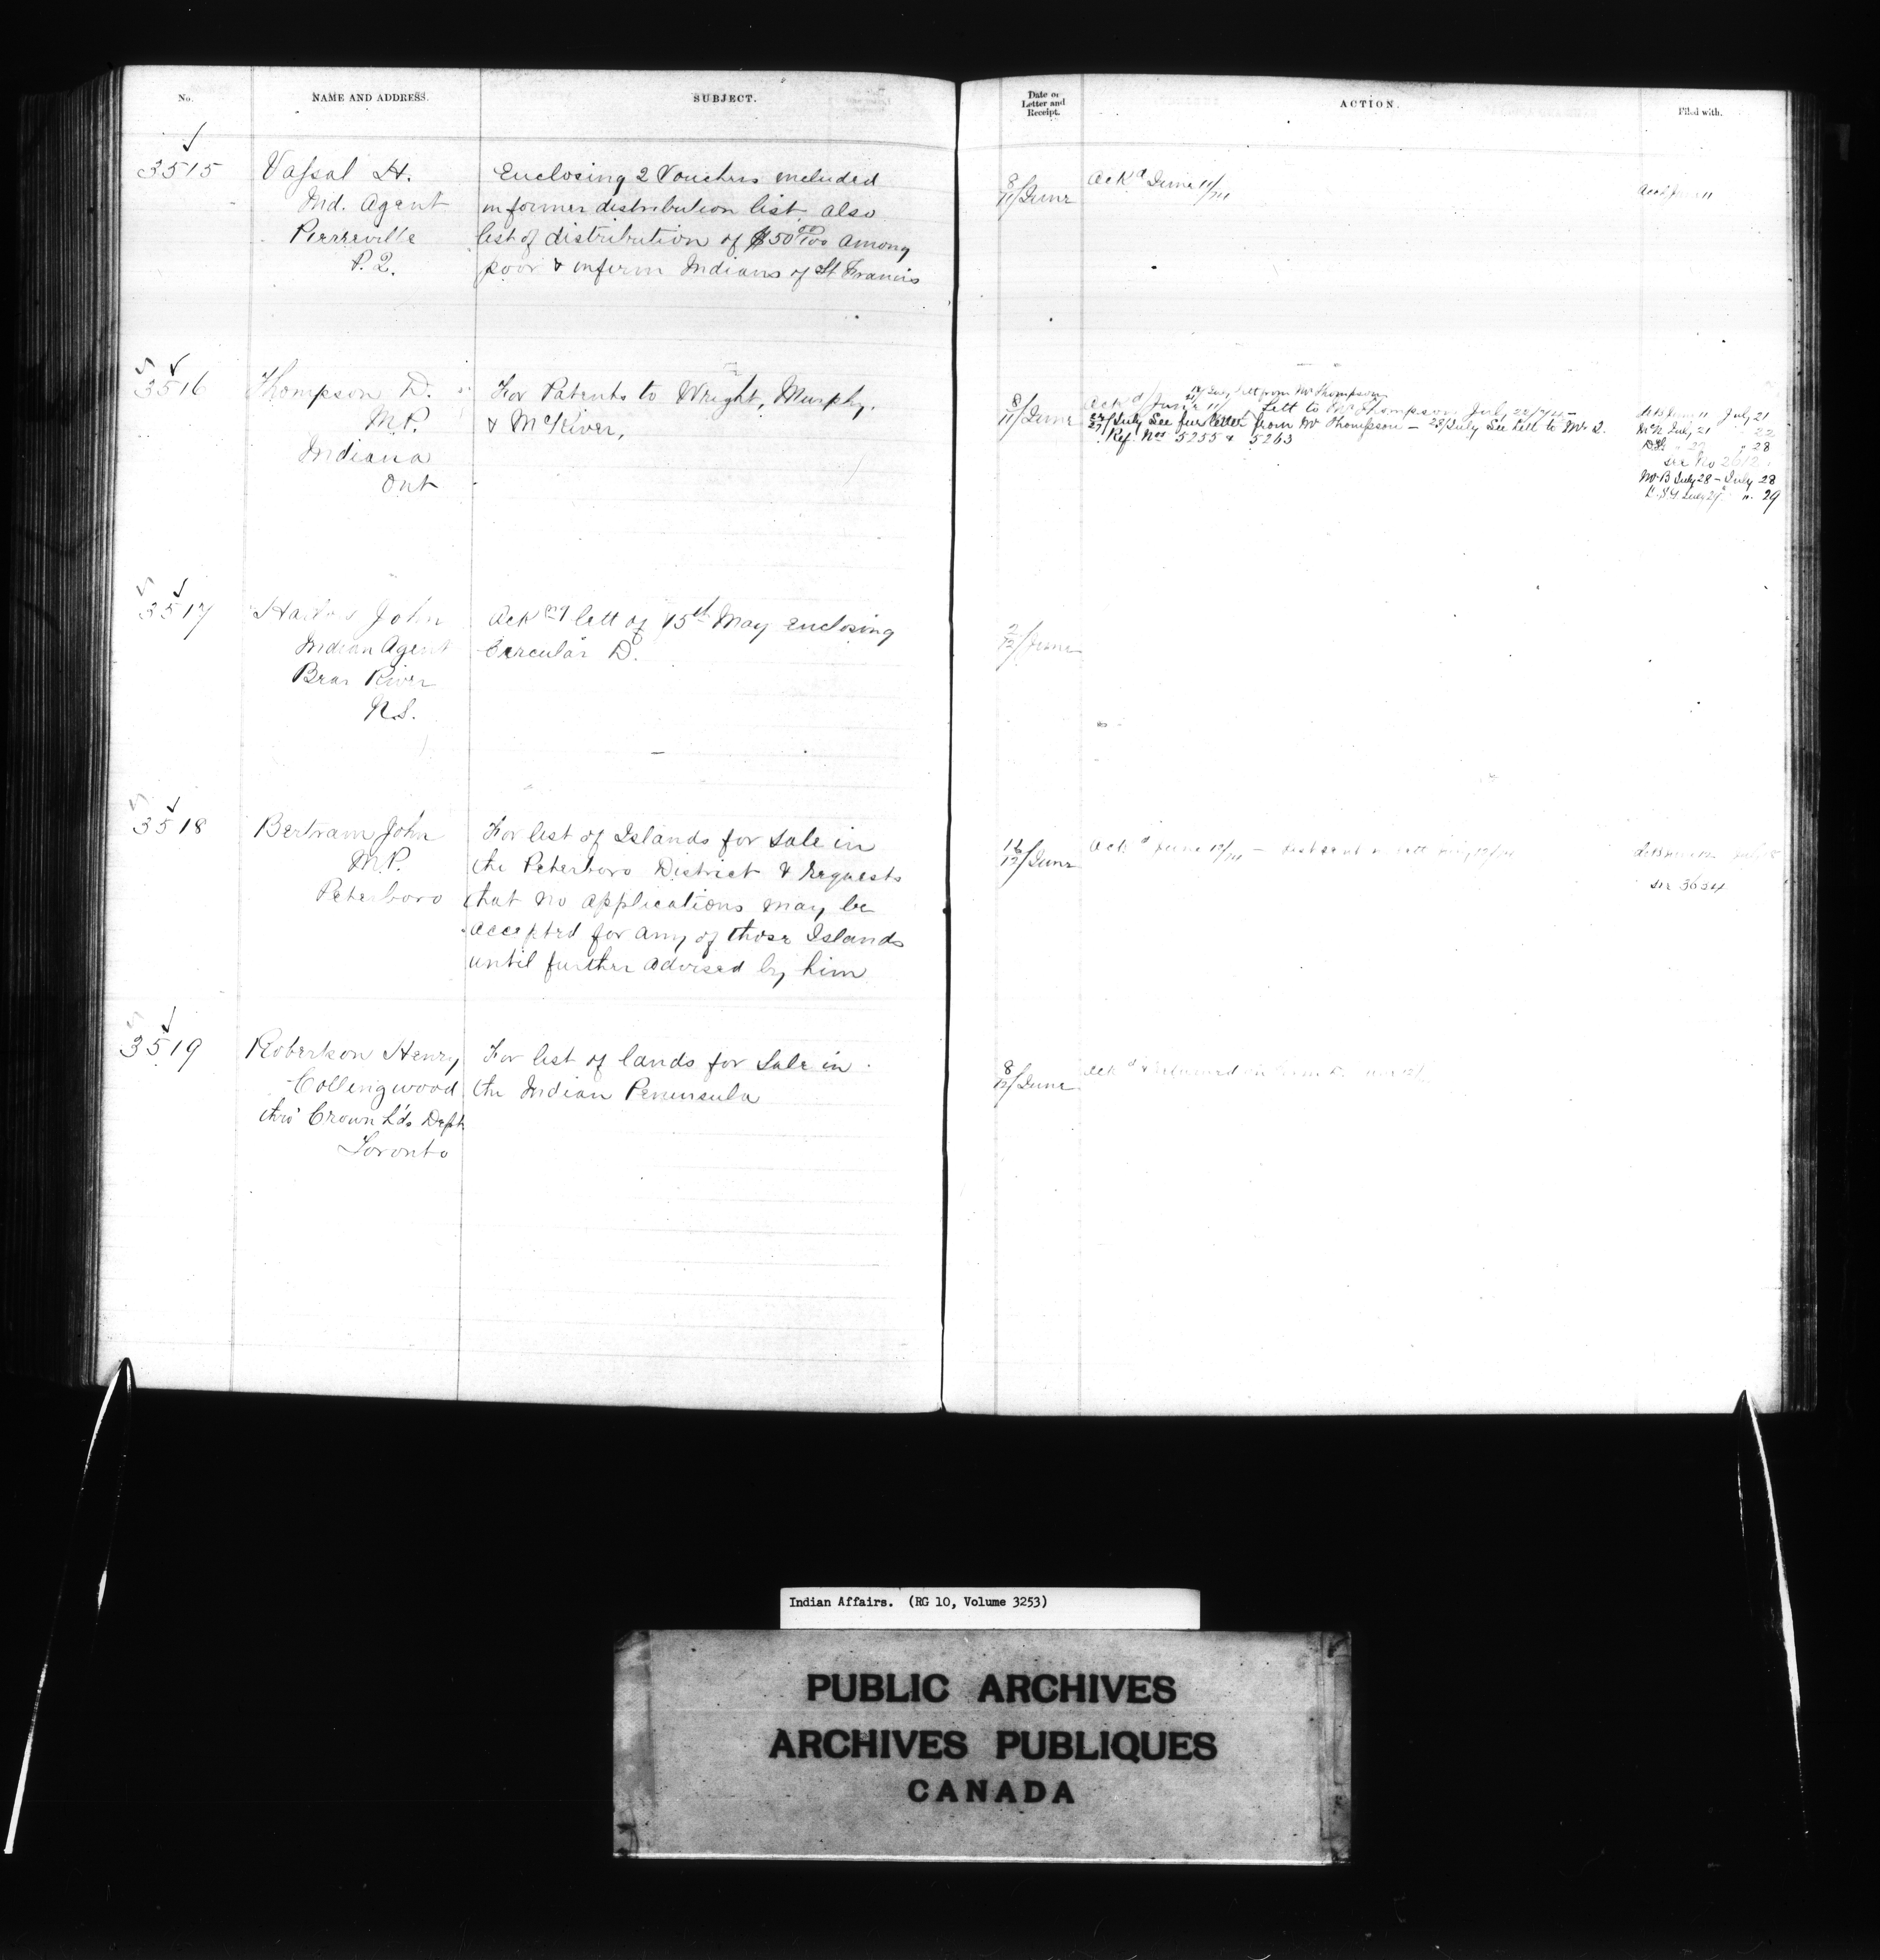 No.
NAME AND ADDRESS.
SUBJECT.
Date of Letter and Receipt.
ACTION.
Filed with.
3515
Vassal H.
Ind. Agent
Pierreville
P.Q.
Enclosing 2 Vouchers included
in former distribution list, also
list of distribution of $50 00/100 among
poor & infirm Indians of St Francis
8/11/June
Ackd June 11/74
3516
Thompson D.
M.P.
Indiana
Ont
For Patents to Wright, Murphy,
& McKiver,
8/11/June
lett from Mr Thompson
Ackd June 11/ Lett to Mr Thompson July 22/74 -
27/July See fur letter from Mr Thompson - 28/July See Lett to Mr
Ref. Nos 5255 & 5263
June 11 July 21
July 21 22
28
see No 2612
Mr B July 28 - July 28
July 29 " 29
3517
John
Indian Agent
Bear River
N.S.
Ackng lett of 15th May enclosing
Circular D.
2/12/June
3518
Bertram John
M.P.
Peterboro
For list of Islands for sale in
the Peterboro District & requests
that no applications may be
accepted for any of those Islands
until further advised by him
12/June
Ackd June 12/74 -
see 3634
3519
Robertson Henry
Collingwood
thro' Crown L'ds Dept
Toronto
For list of lands for Sale in
the Indian Peninsula
8/12/June
Ackd &
Indian Affairs. (RG 10, Volume 3253)
PUBLIC ARCHIVES
ARCHIVES PUBLIQUES
CANADA